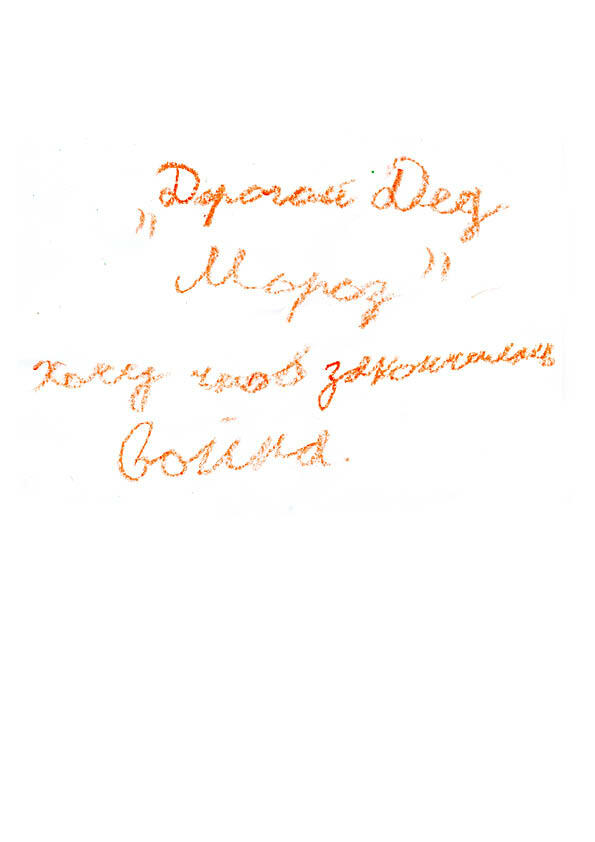 „Дорогой Дед
Мороз"
хочу чтоб закончилась
война.